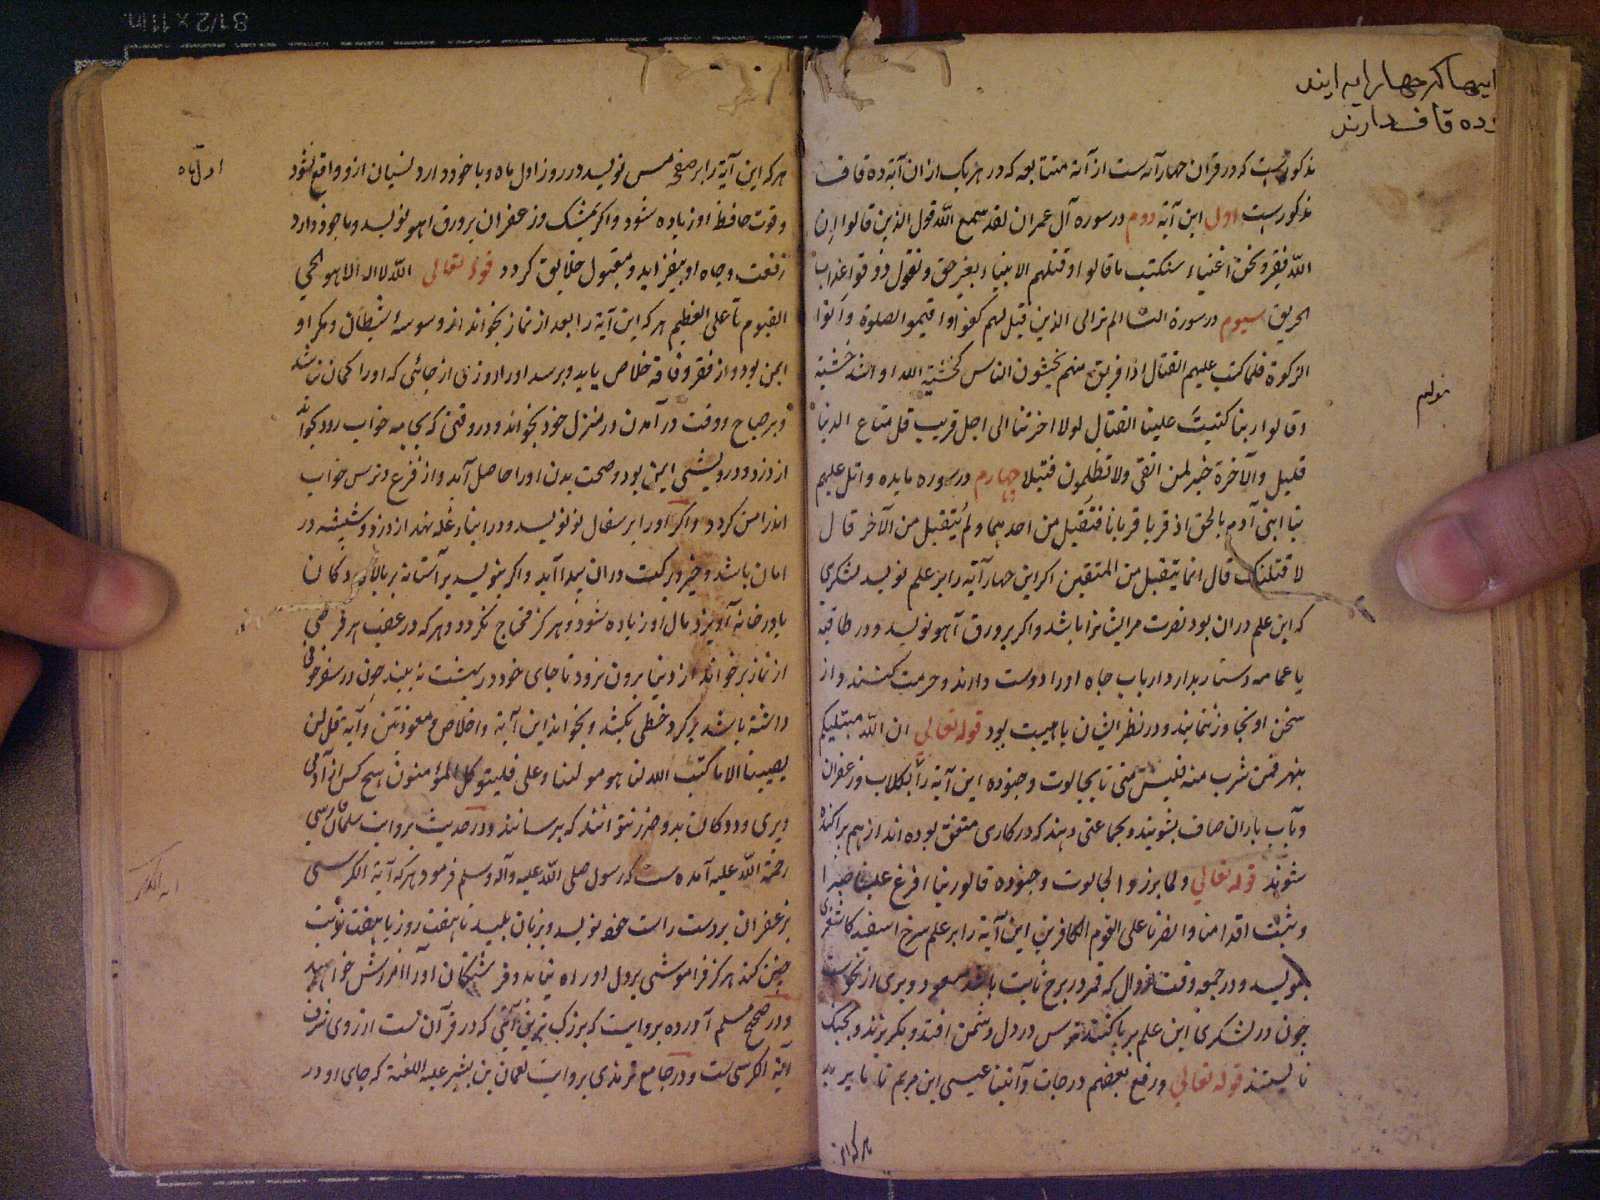 اینها که چهار ایه ایند
وده قاف دارند
مذکورست که در قران چهار آیه است از آیه متتابعه که در هر یک از ان آیه ده قاف
مذکورست اول این آیة دوم در سوره آل عمران لقد سمع الله قول الذین قالوا ان
الله فقیر و نحن اغنیاء سنکتب ما قالوا و قتلهم الانبیاء بغیر حق و نقول ذوقوا عذاب
الحریق سیوم در سورة النسا الم تر الی الذین قیل لهم کفوا و اقیموا الصلوة و آتوا
الزکوة فلما کتب علیهم القتال اذا فریق منهم یخشون الناس کخشیة الله او اشد خشیة
و قالوا ربنا کتبت علینا القتال لولا اخرتنا الی اجل قریب قل متاع الدنیا
قلیل و الآخرة خیر لمن اتقی ولا تظلمون فتیلا چهارم در سوره مایده و اتل علیهم
نبا ابنی آدم بالحق اذ قربا قربانا فتقبل من احدهما و لم یتقبل من الآخر قال
لاقتلنک قال انما یتقبل من المتقین اکر این چهار آیة را بر علم نویسد لشکری
که این علم دران بود نصرت مر ایشانرا باشد و اکر بر ورق آهو نویسد و در طاقیه
یا عمامه و دستار بدارد ارباب جاه او را دوست دارند و حرمت کنند و از
سخن او تجاوز ننمایند و در نظر ایشان با هیبت بود قوله تعالی ان الله مبتلیکم
بنهر فمن شرب منه فلیس منی تا بجالوت و جنوده این آیة را بکلاب و زعفران
و بآب باران صاف بشویند و بجماعتی دهند که در کاری متفق بوده اند از هم پراکنده
شوند قوله تعالی و لما برزوا لجالوت و جنوده قالوا ربنا افرغ علینا صبرا
و ثبت اقدامنا و انصرنا علی القوم الکافرین این آیة را بر علم سرخ اسفید
بنویسد و در جمعه وقت زوال که قمر در برج ثابت باشد مسعود و بری از نحوست
چون در لشکری این علم بر پا کنند ترس در دل دشمن افتد و بکریزند و بجنک
نایستند قوله تعالی و رفع بعضهم درجات و آتینا عیسی ابن مریم تا
هر که این
اول ماه
هر که این آیة را بر صفحه مس نویسد در روز اول ماه و با خود دارد نسیان ازو واقع نشود
و قوت حافظه او زیاده شود و اکر بمشک و زعفران بر ورق اهو نویسد و با خود دارد
رفعت و جاه او بیفزاید و مقبول خلایق کردد قوله تعالی الله لا اله الا هو الحی
القیوم تا علی العظیم هر که این آیة را بعد از نماز بخواند از وسوسهٔ شیطان و مکر او
ایمن بود و از فقر و فاقه خلاص یابد و برسد او را روزی از جائی که او را کمان نباشد
و هر صباح و وقت در آمدن در منزل خود بخواند و در وقتی که بجامه خواب رود بخواند
از دزد و درویشی ایمن بود و صحت بدن او را حاصل آید و از فزع و ترس خواب
اندر امن کردد و اکر او را بر سفال نو نویسد و در انبار غله نهد از دزد و شپشه در
امان باشد و خیر و برکت دران پیدا آید و اکر بنویسد بر آستانه بر بالا در دکان
یا در خانه آویزد مال او زیاده شود و هر کز محتاج نکردد و هر که در عقب هر فرضی
از نماز برخواند از دنیا برون نرود تا جای خود در بهشت نه بیند چون در سفر خوفی
داشته باشد بر کرد خطی بکشد و بخواند این آیة و اخلاص و معوذتین و آیة قل لن
یصیبنا الا ما کتب الله لنا هو مولینا و علی الله فلیتوکل المؤمنون هیچ کس از آدمی
و پری و دد کان بدو ضرر نتوانند که برسانند و در حدیث بروایت سلمان فارسی
رحمة الله علیه آمده است که رسول صلی الله علیه و آله و سلم فرمود هر که آیة الکرسی
بزعفران بر دست راست خود نویسد و بزبان بلیسد تا هفت روز یا هفت نوبت
چنین کند هر کز فراموشی بر دل او راه نیابد و فرشتکان او را آمرزش خواهند
و در صحیح مسلم آورده بروایت که بزرک ترین آیتی که در قرآن است از روی شرف
آیة الکرسی است و در جامع ترمذی بروایت نعمان بن بشیر علیه اللعنه که جای او در